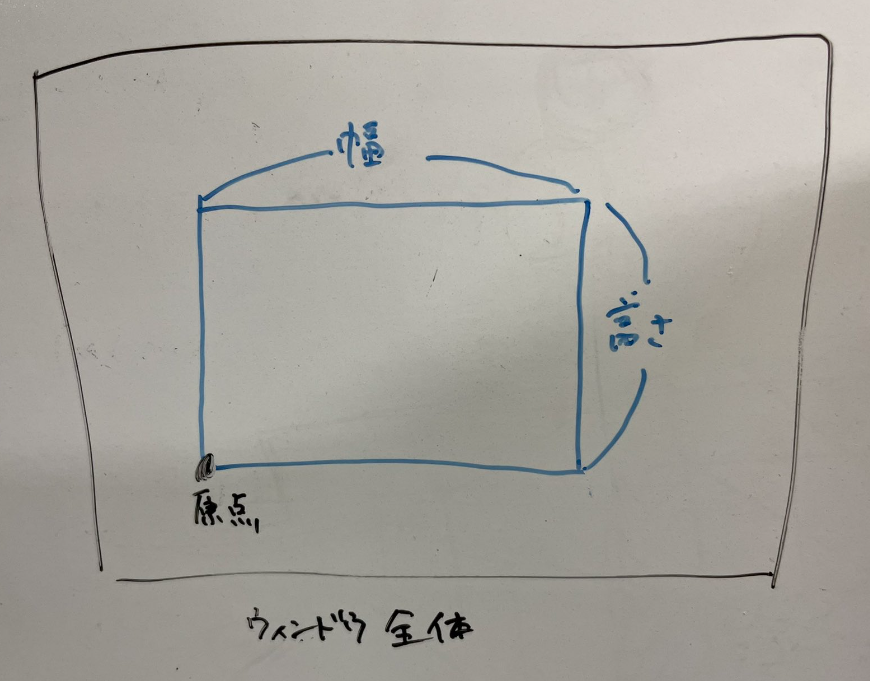 幅
高さ
原点
ウィンドウ全体